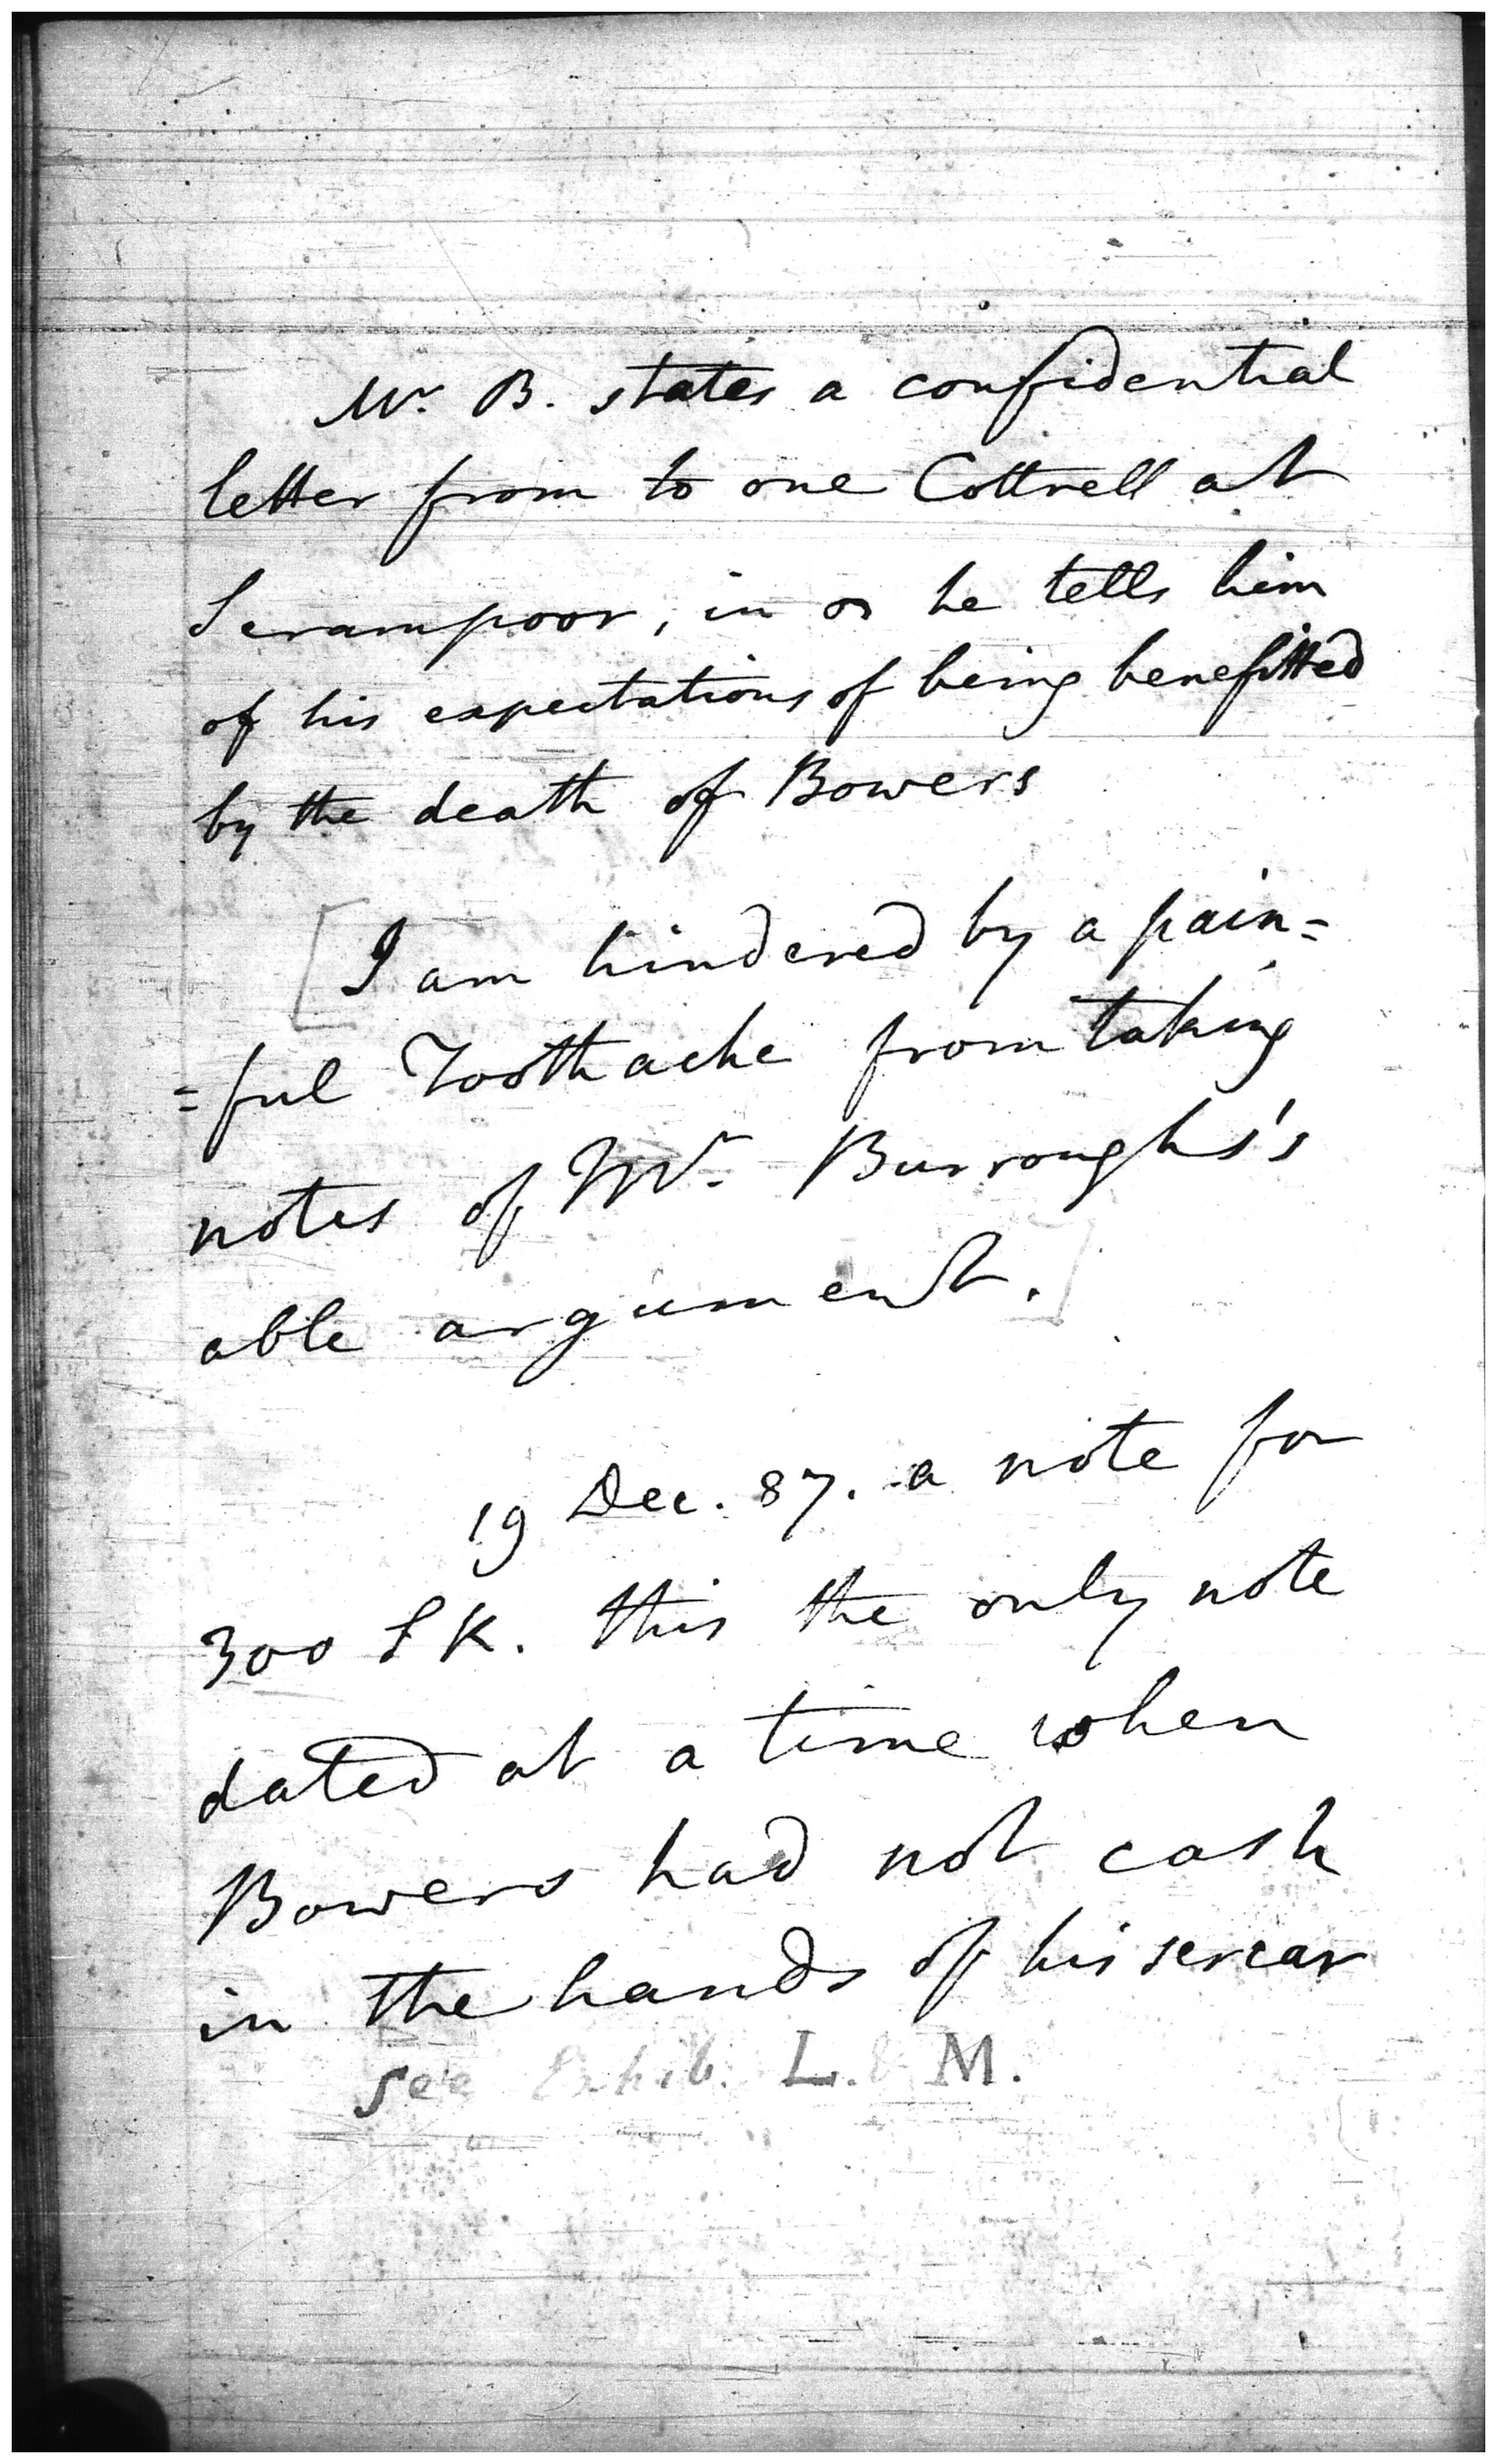 Mr. B. states a confidential
letter from to one Cottrell at
Serampoor, in he tells him
of his expectations of being benefitted
by the death of Bowers
[I am hindered by a pain=
=ful Toothache from taking
notes of Mr. Burroughs's
able argument.]
19 Dec. 87. a note for
300 S K. this the only note
dated at a time when
Bowers had not cash
in the hands of his sercar
see Exhib. L. & M.